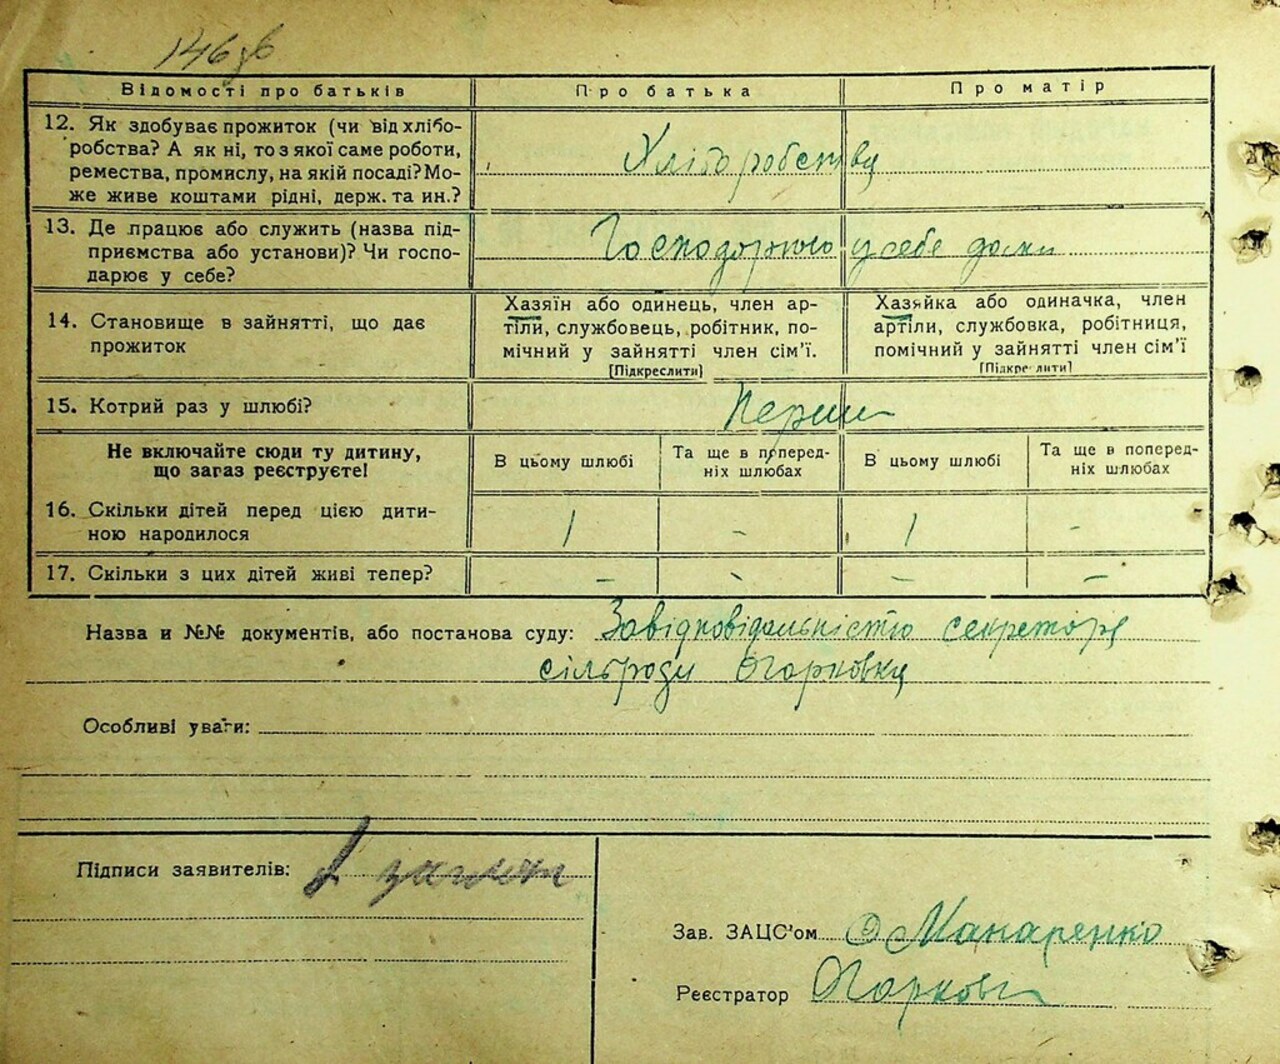 146 зв
Відомості про батьків Про батька Про матір
12. Як здобуває прожиток (чи від хлібо-
робства? А як ні, то з якої саме роботи,
ремества, промислу, на якій посаді? Мо-
же живе коштами рідні, держ. та ин.?
Хліборобству
13. Де працює або служить (назва під-
приємства або установи)? Чи госпо-
дарює у себе?
у себе дома
14. Становище в зайнятті, що дає
прожиток
Хазяїн або одинець, член ар-
тіли, службовець, робітник, по-
мічний у зайнятті член сім'ї.
[Підкреслити]
Хазяйка або одиначка, член
артіли, службовка, робітниця,
помічний у зайнятті член сім'ї
[Підкреслити]
15. Котрий раз у шлюбі?
Перши
Не включайте сюди ту дитину,
що загаз реєструєте!
В цьому шлюбі
Та ще в поперед-
ніх шлюбах
В цьому шлюбі
Та ще в поперед-
ніх шлюбах
16. Скільки дітей перед цією дити-
ною народилося
1 - 1 -
17. Скільки з цих дітей живі тепер?
- - - -
Назва и №№ документів, або постанова суду: Завідповідальністю секретаря
сільради Огарковки
Особливі уваги:
Підписи заявителів:
Зав. ЗАЦС'ом Макаренко
Реєстратор Огаркови